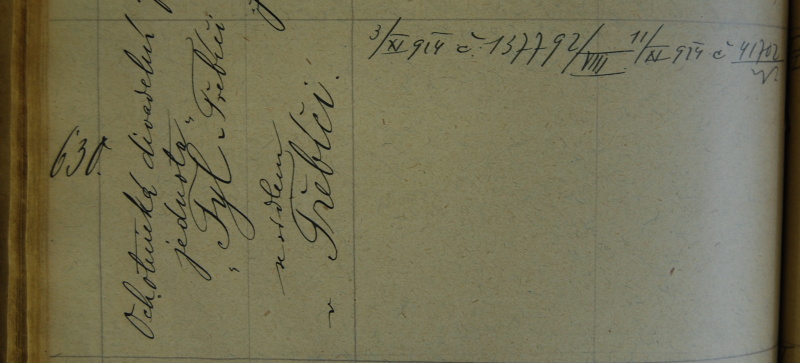 630.
Ochotnická divadelní
jednota
„Tyl“ v Třebíči
se sídlem
v Třebíči.
3/XI 914 č. 137792/VIII 11/XI 914 č 41702